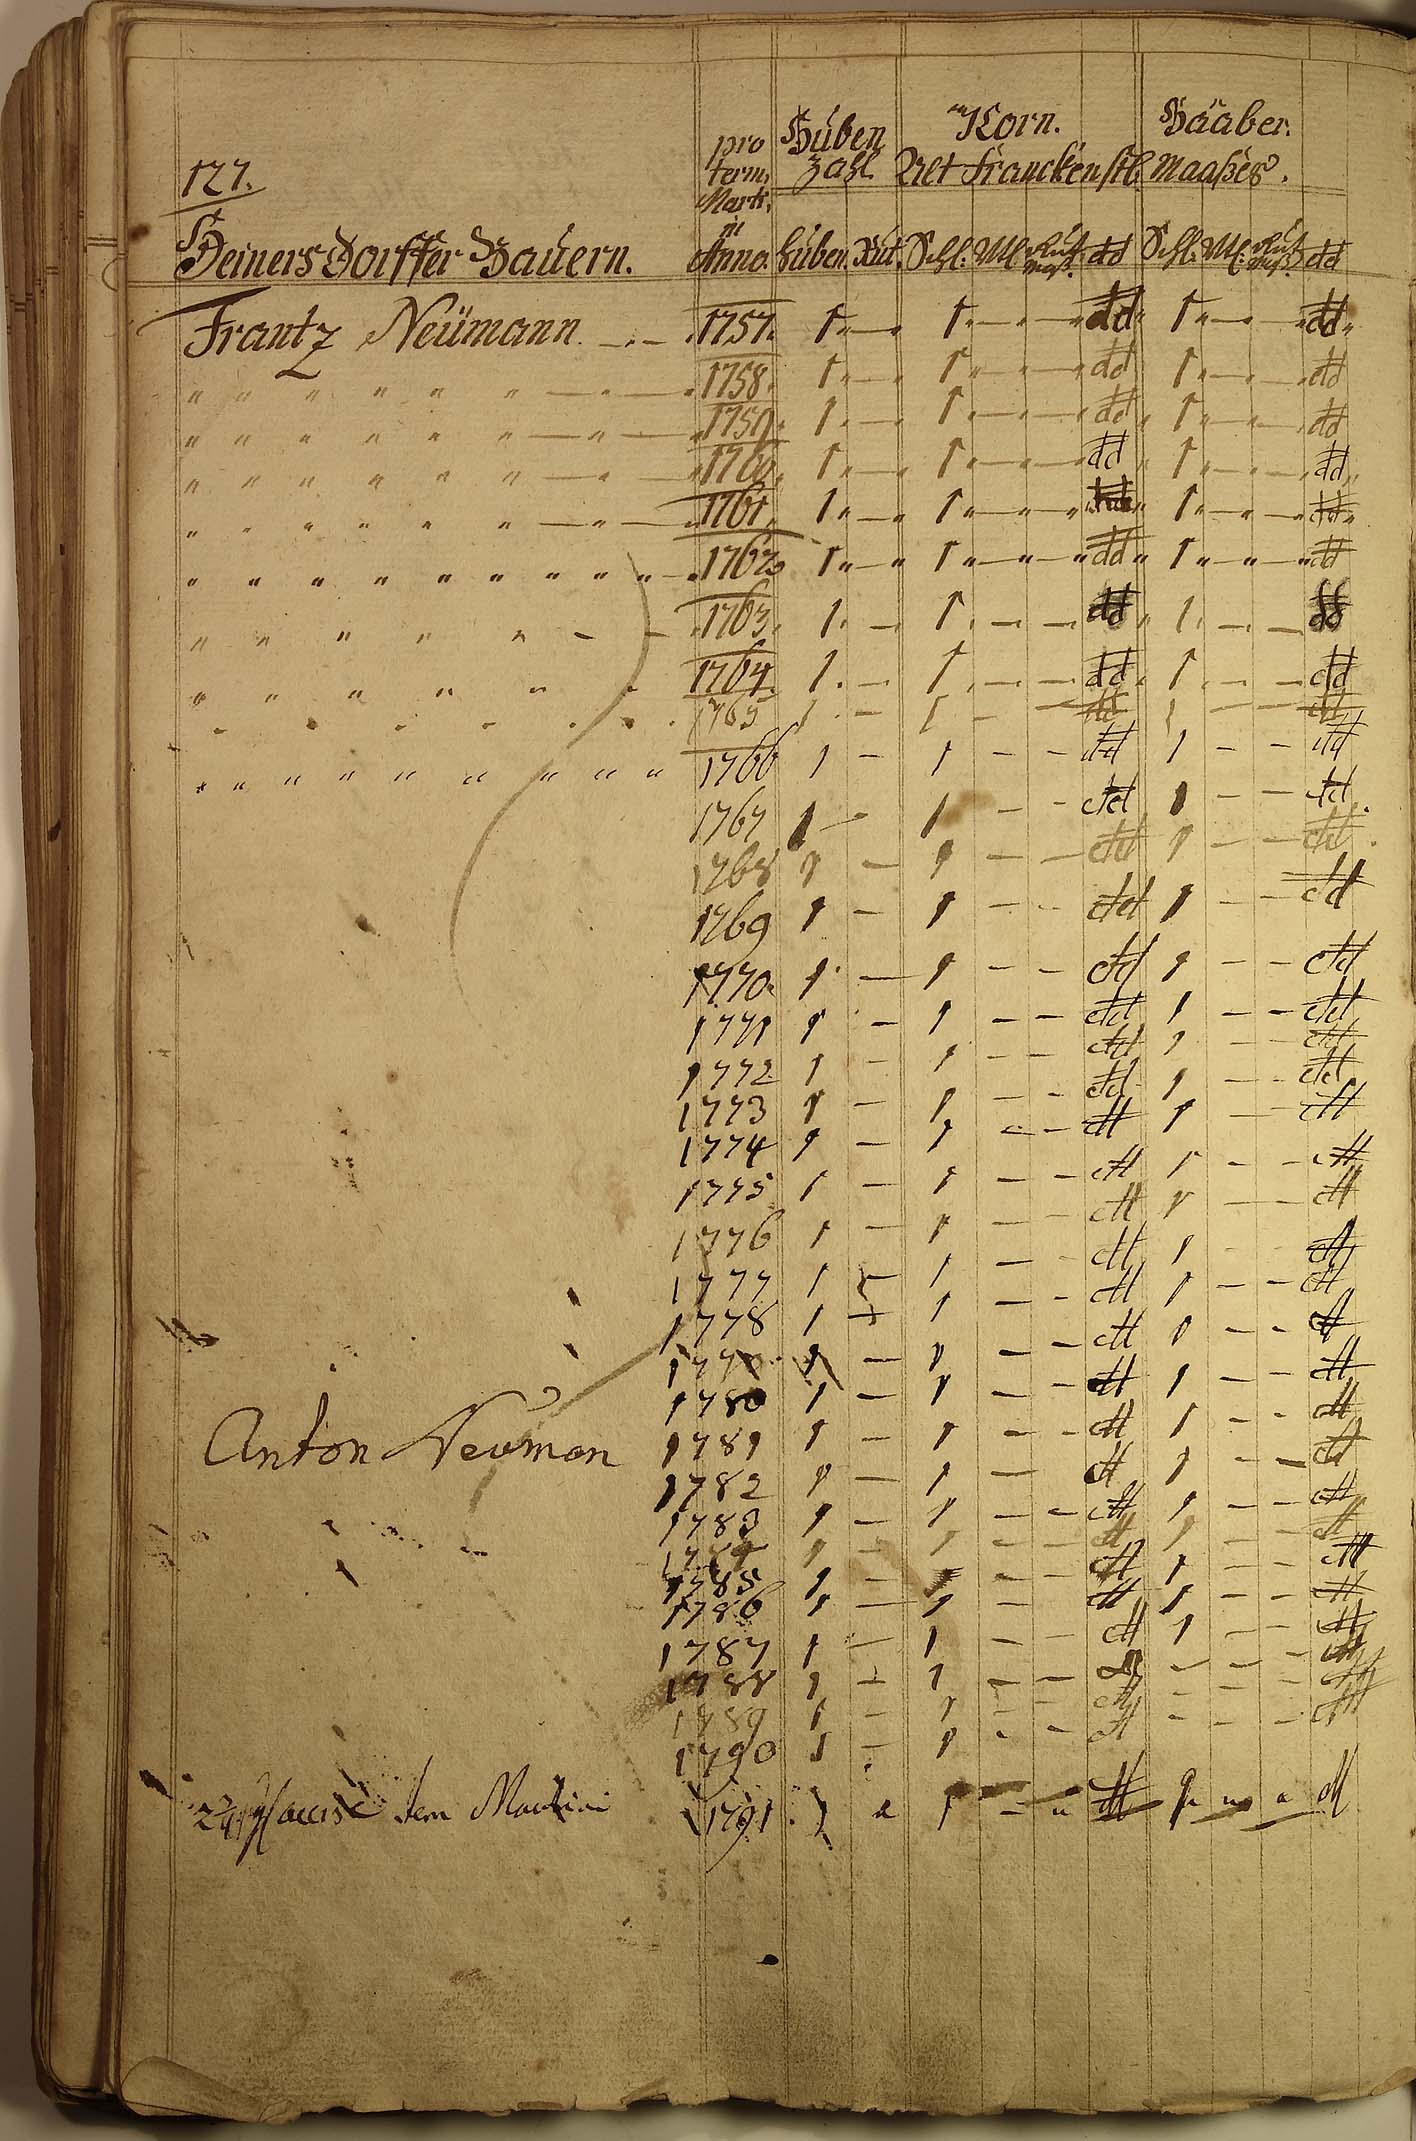 127.
pro term. Marti. in Anno.
Huben Zahl
Korn.
Haaber.
Alt Franckenstl. Maaßes.
Heinersdorffer Bauern.
Huben. Rut. Schl: Ml: dd Schl: Ml: dd
Frantz Neümann. — . — 1757. 1 „ — 1 . — . — dd „ 1 „ — „ — dd „
„ „ „ „ „ „ — „ — 1758. 1 „ — 1 „ — „ — dd 1 „ — „ — dd
„ „ „ „ „ „ — „ — 1759. 1 . — 1 „ — „ — dd „ 1 „ — „ — dd
„ „ „ „ „ „ — „ — 1760. 1 „ — 1 „ — „ — dd „ 1 „ — „ — dd „
„ „ „ „ „ „ — „ — 1761. 1 „ — 1 „ — „ — dd „ 1 „ — „ — dd „
„ „ „ „ „ „ „ „ „ „ — 1762. 1 „ — „ 1 „ — „ — „ dd „ 1 „ — „ — „ dd
„ „ „ „ „ — — 1763. 1 . — 1 . — . — dd „ 1 . — . — dd
„ „ „ „ „ „ 1764. 1 . — 1 . — — dd . 1 . — — dd
„ „ „ „ „ „ 1765 1 . — 1 — — dd 1 — — dd
„ „ „ „ „ „ „ „ „ „ 1766 1 — 1 — — dd 1 — — dd
1767 1 — 1 — — dd 1 — — dd.
1768 1 — 1 — — dd 1 — — dd.
1769 1 — 1 — — dd 1 — — dd
1770. 1 . — 1 — — dd 1 — — dd
1771 1 — 1 — — dd 1 — — dd
1772 1 — 1 — — dd 1 — — dd
1773 1 — 1 — — dd 1 — — dd
1774 1 — 1 — — dd 1 — — dd
1775 1 — 1 — — dd 1 — — dd
1776 1 — 1 — — dd 1 — — dd
1777 1 — 1 — — dd 1 — — dd
1778 1 — 1 — — dd 1 — — dd
1779 1 — 1 — — dd 1 — — dd
1780 1 — 1 — — dd 1 — — dd
Anton Neuman 1781 1 — 1 — — dd 1 — — dd
1782 1 — 1 — dd 1 — — dd
1783 1 — 1 — — dd 1 — — dd
1784 1 — 1 — — dd 1 — — dd
1785 1 — 1 — — dd 1 — — dd
1786 1 — 1 — — dd 1 — — dd
1787 1 — 1 — — dd 1 — — dd
1788 1 — 1 — — dd — — — dd
1789 1 — 1 — — dd — — — dd
1790 1 — 1 — — dd — — — dd
1791